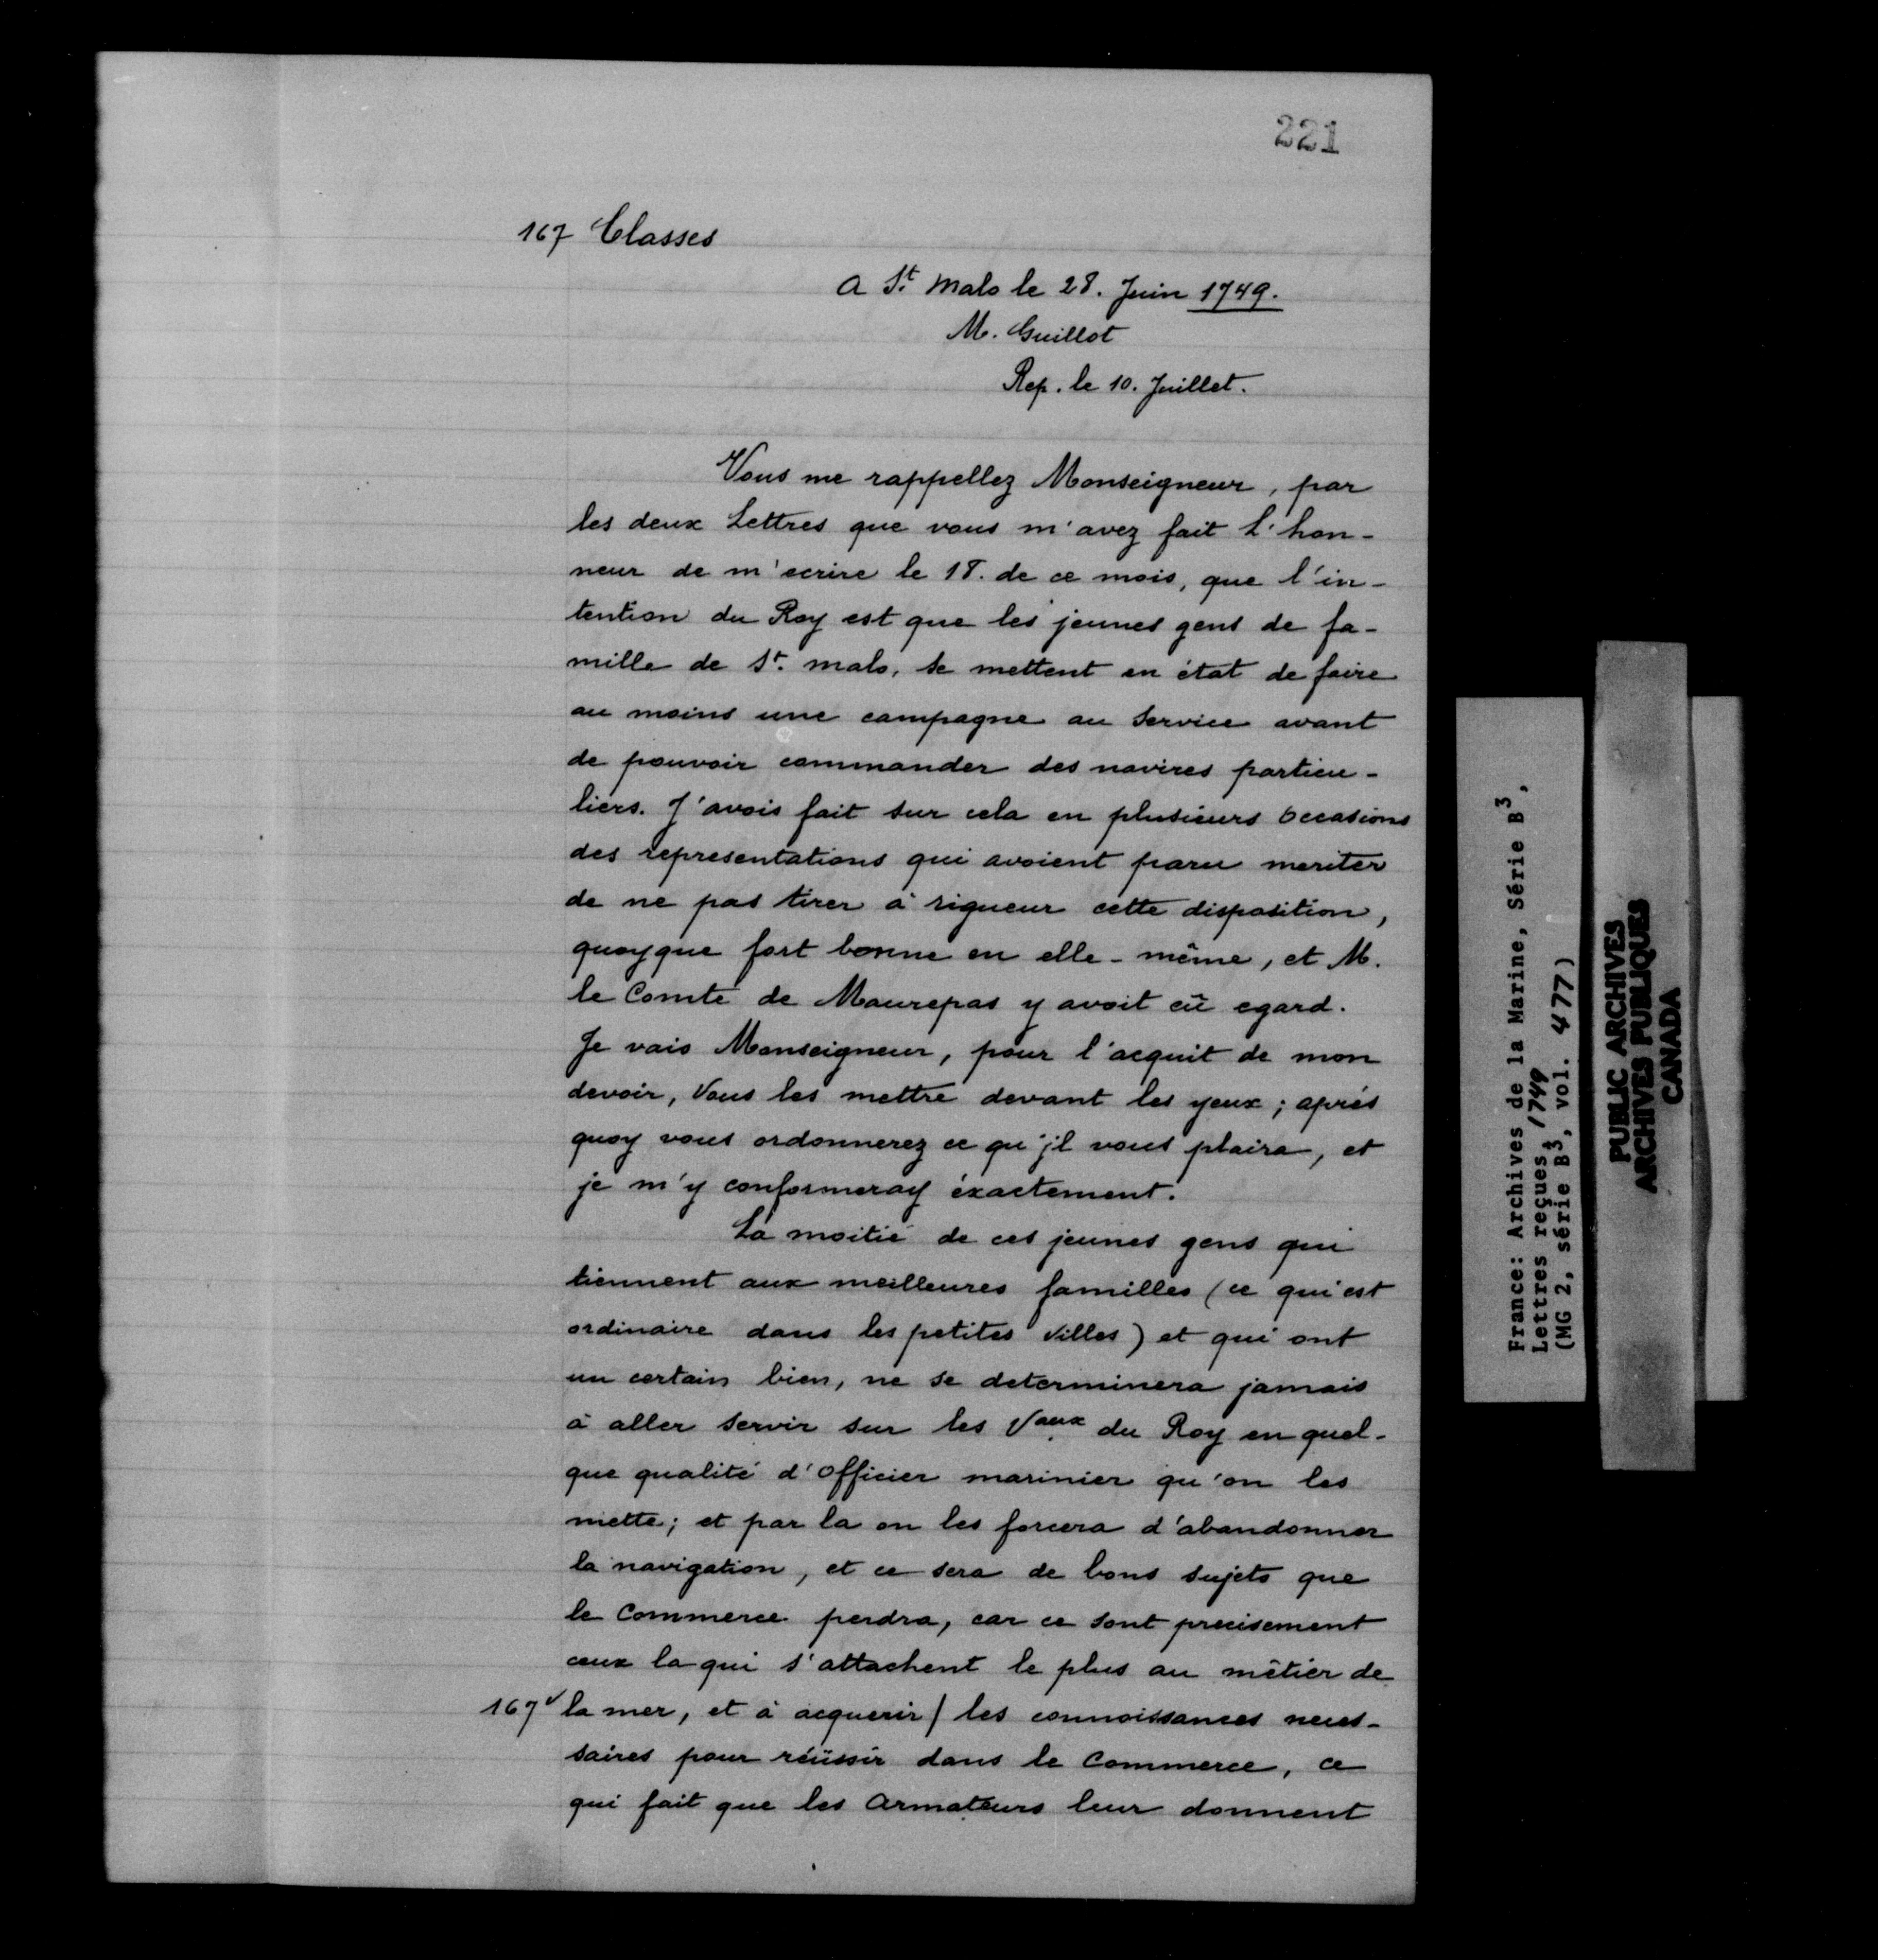 221
167 Classes
A St. Malo le 28. Juin 1749.
M. Guillot
Rep. le 10. Juillet.
Vous me rappellez Monseigneur, par
les deux Lettres que vous m'avez fait l'hon-
neur de m'ecrire le 18. de ce mois, que l'in-
tention du Roy est que les jeunes gens de fa-
mille de St. malo, se mettent en état de faire
au moins une campagne au Service avant
de pouvoir commander des navires particu-
liers. J'avois fait sur cela en plusieurs Occasions
des representations qui avoient paru meriter
de ne pas tirer à rigueur cette disposition,
quoyque fort bonne en elle-même, et M.
le Comte de Maurepas y avoit eû egard.
Je vais Monseigneur, pour l'acquit de mon
devoir, Vous les mettre devant les yeux; aprés
quoy vous ordonnerez ce qu'jl vous plaira, et
je m'y conformeray éxactement.
La moitié de ces jeunes gens qui
tiennent aux meilleures familles (ce qui est
ordinaire dans les petites Villes) et qui ont
un certain bien, ne se determinera jamais
à aller servir sur les Vaux du Roy en quel-
que qualité d'Officier marinier qu'on les
mette; et par la on les forcera d'abandonner
la navigation, et ce sera de bons sujets que
le Commerce perdra, car ce sont precisement
ceux la qui s'attachent le plus au métier de
167v la mer, et à acquerir / les connoissances neces-
saires pour réüssir dans le Commerce, ce
qui fait que les Armateurs leur donnent
France: Archives de la Marine, Série B3,
Lettres reçues, 1749
(MG 2, série B3, vol. 477)
PUBLIC ARCHIVES
ARCHIVES PUBLIQUES
CANADA